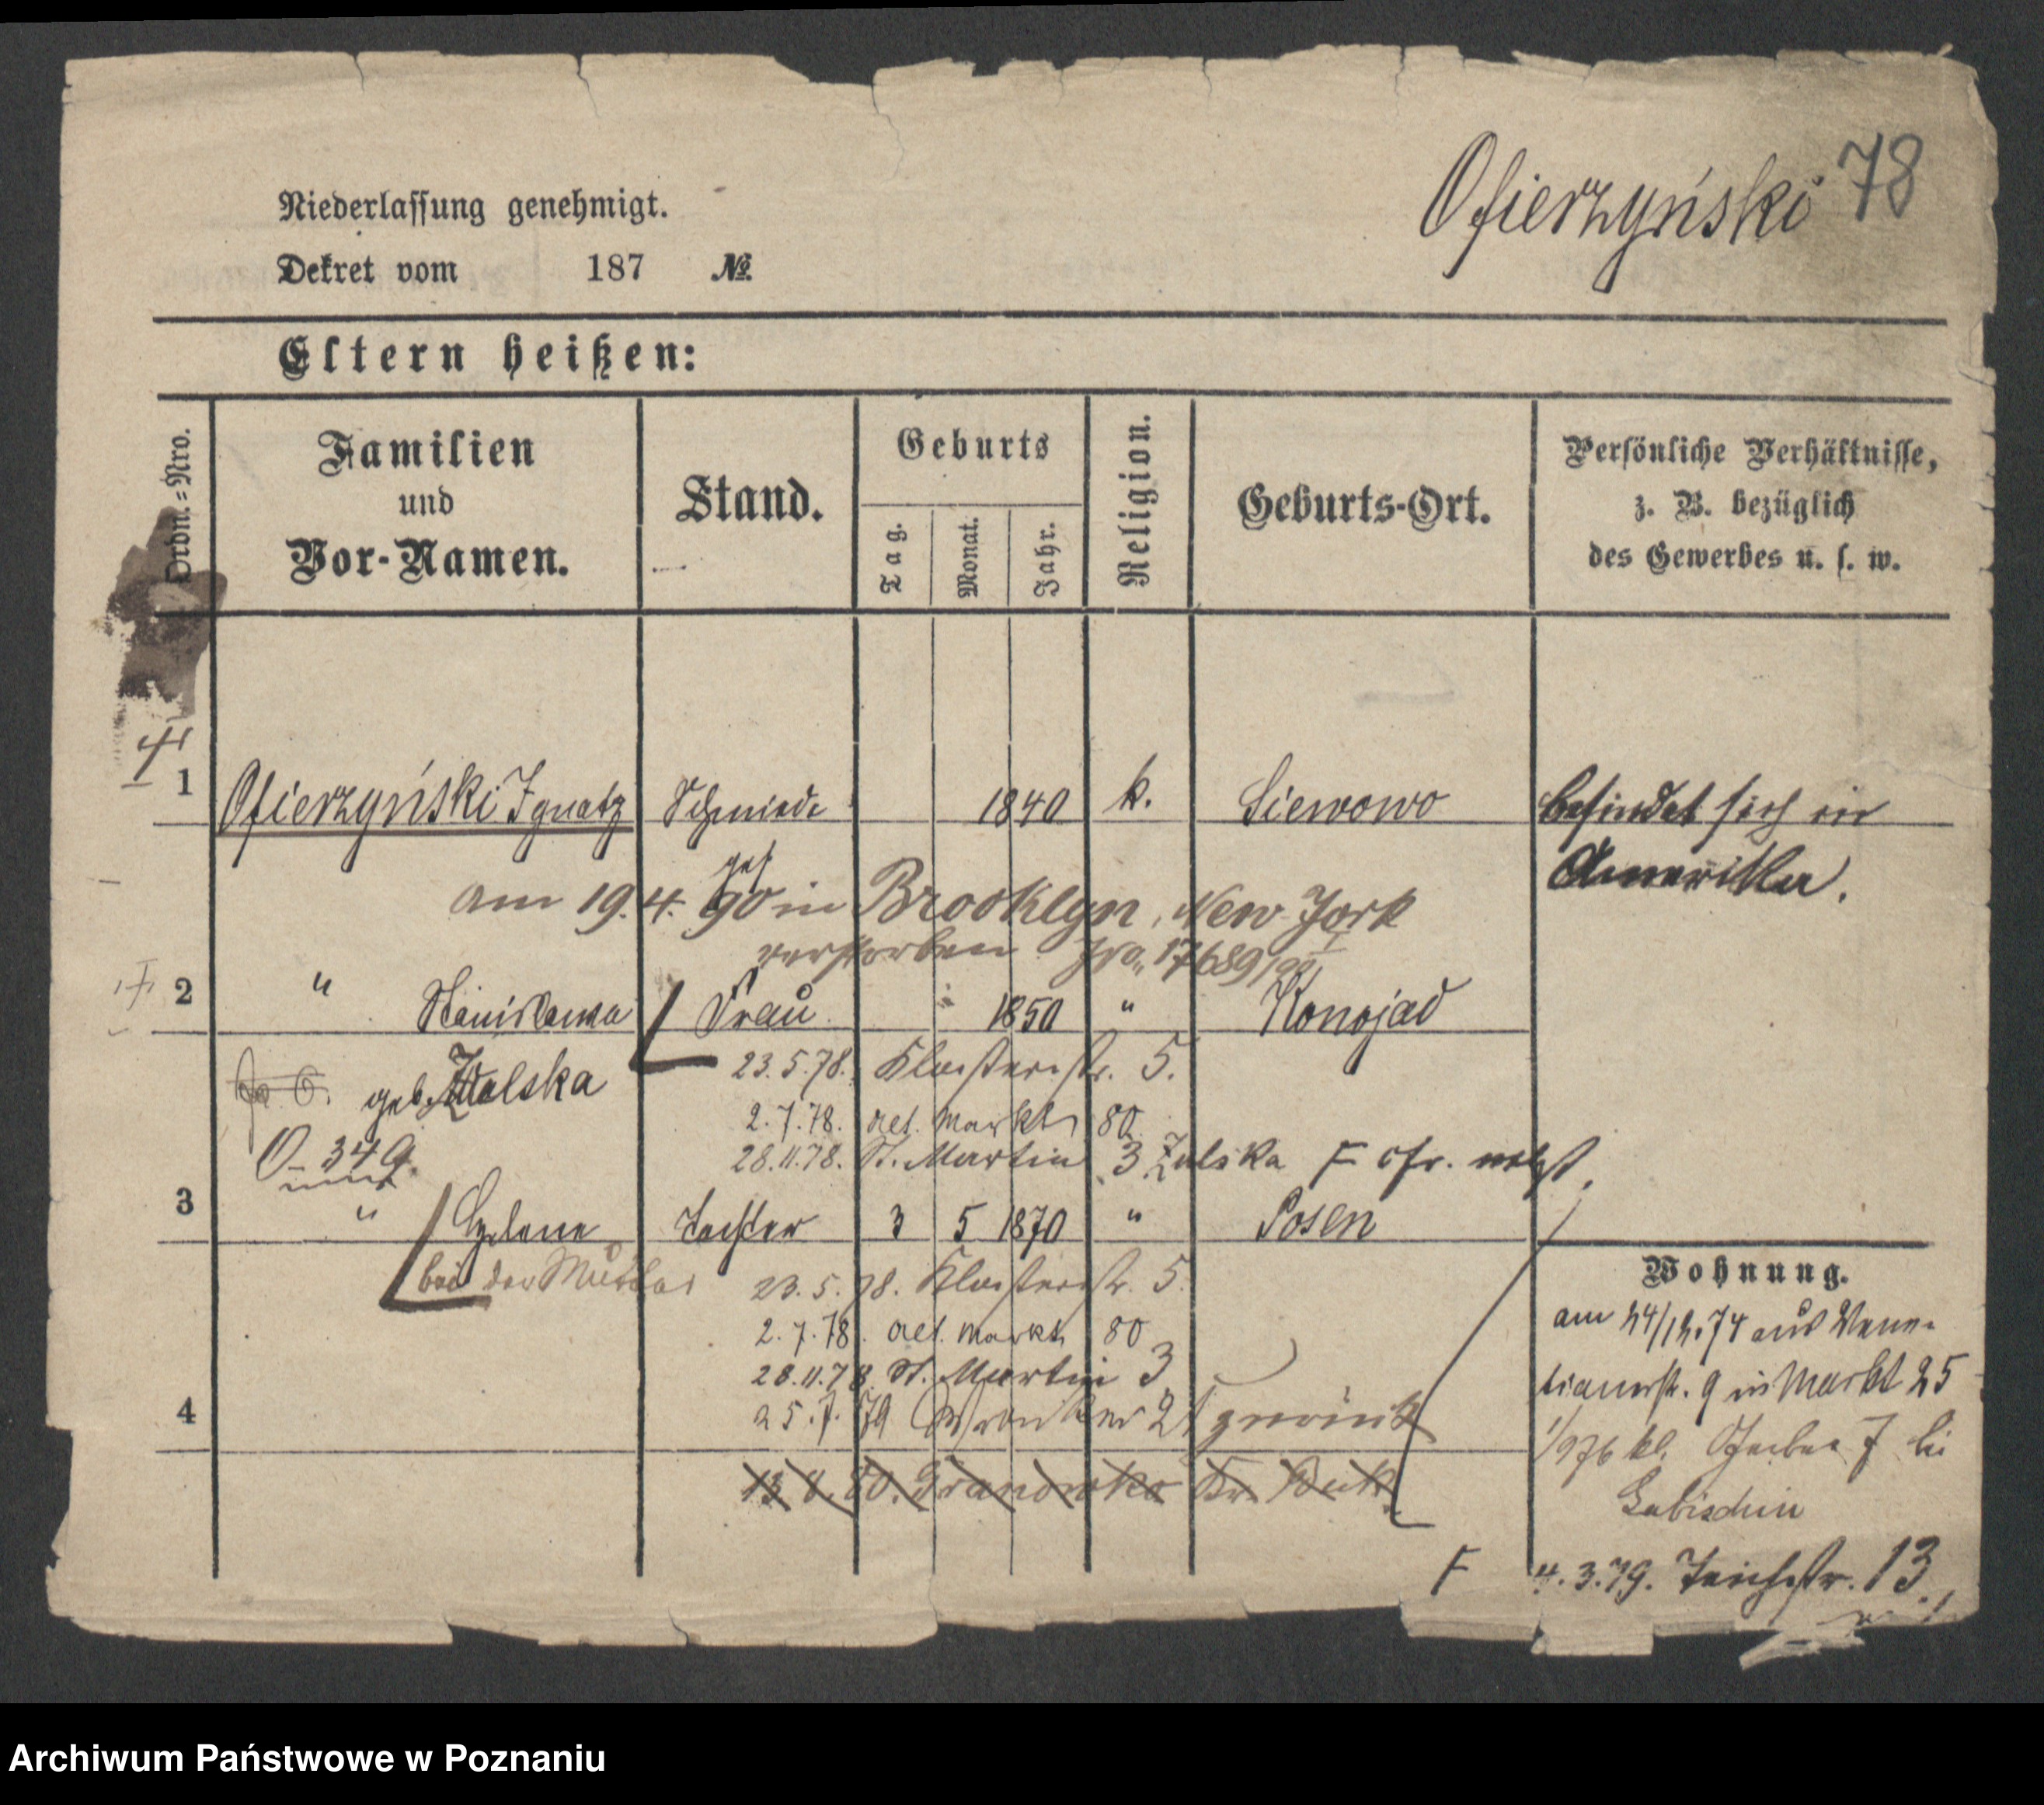 78
Ofierzyński
Niederlassung genehmigt.
Dekret vom 187 №
Eltern heißen:
Ordn.=Nro.
Familien
und
Vor-Namen.
Stand.
Geburts
Tag.
Monat.
Jahr.
Religion.
Geburts-Ort.
Persönliche Verhältnisse,
z. B. bezüglich
des Gewerbes u. s. w.
1 Ofierzyński Ignatz Schmied 1840 k. Siewowo befindet sich in
Amerika.
am 19.4. 90 in Brooklyn, New York
verstorben 17689
2 " Stanislawa Frau 1850 " Konojad
geb. Zalska 23.5.78. Klosterstr. 5.
2.7.78. alt. Markt 80
O 349 28.11.78. St. Martin 3 Zulska F cfr.
3 " Helene Tochter 3 5 1870 " Posen
bei der Mutter 23.5.78. Klosterstr. 5.
2.7.78. alt. Markt 80
28.11.78. St. Martin 3
4 25.7.79 Wronker 21 zurück
13.8.80. Kr. Buk
Wohnung.
am 24/12.74 aus Vene-
tianerstr. 9 in Markt 25
kl. Gerber 7 bei
Labischin
F 4.3.79. Teichstr. 13
Archiwum Państwowe w Poznaniu